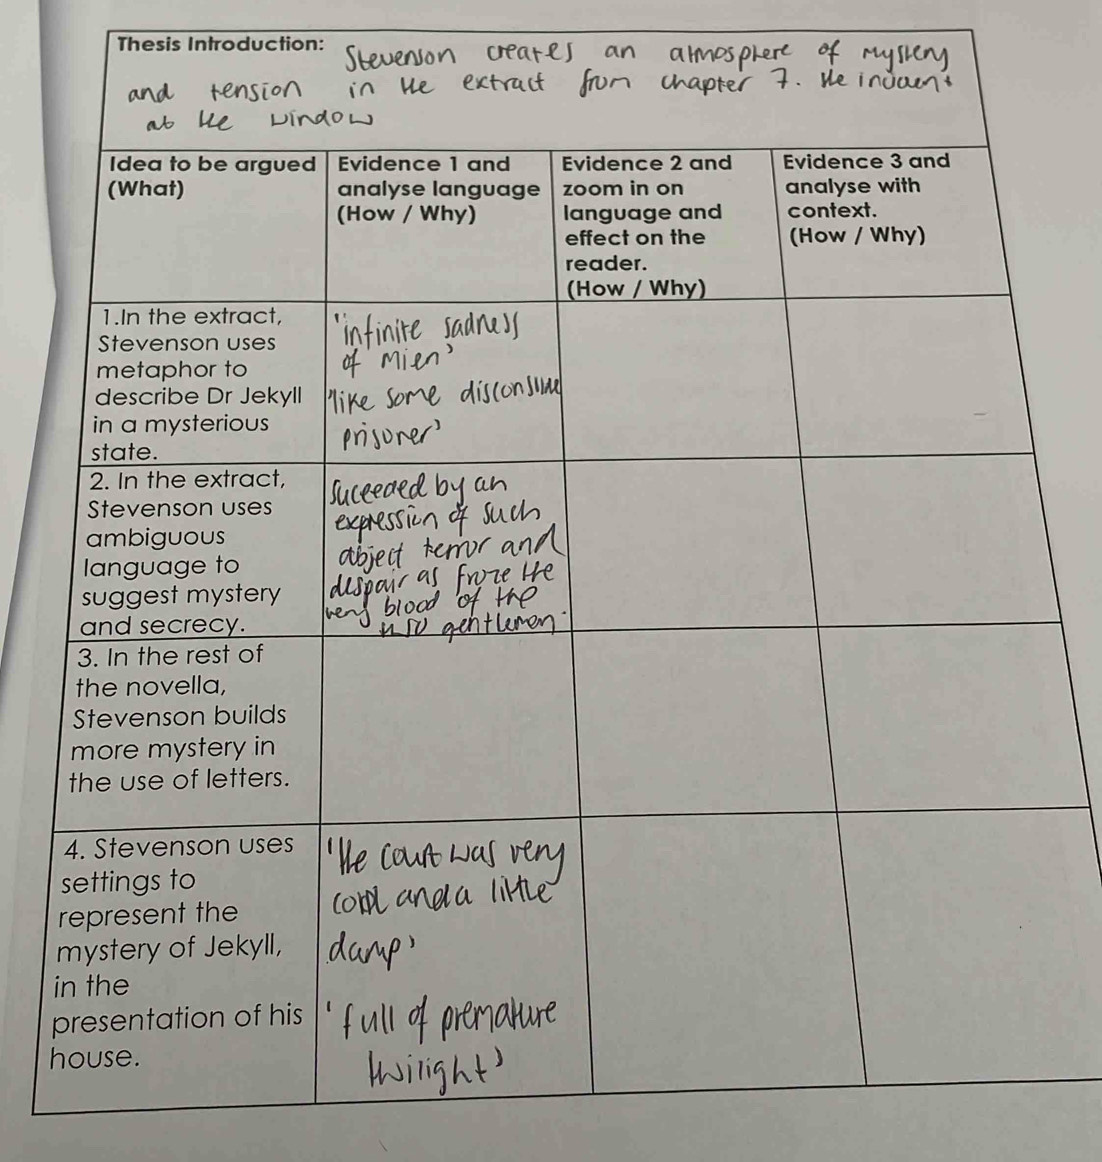 Thesis Introduction: Stevenson creates an atmosphere of mystery
and tension in the extract from chapter 7. the incident
at the window
Idea to be argued
(What)
Evidence 1 and
analyse language
(How / Why)
Evidence 2 and
zoom in on
language and
effect on the
reader.
(How / Why)
Evidence 3 and
analyse with
context.
(How / Why)
1.In the extract,
Stevenson uses
metaphor to
describe Dr Jekyll
in a mysterious
state.
'infinite sadness
of mien'
'like some
prisoner'
2. In the extract,
Stevenson uses
ambiguous
language to
suggest mystery
and secrecy.
suceeded by an
expression of such
abject terror and
despair as froze the
very blood of the
gentlemen.
3. In the rest of
the novella,
Stevenson builds
more mystery in
the use of letters.
4. Stevenson uses
settings to
represent the
mystery of Jekyll,
in the
presentation of his
house.
'the court was very
cool and a little
damp'
'full of premature
twilight'